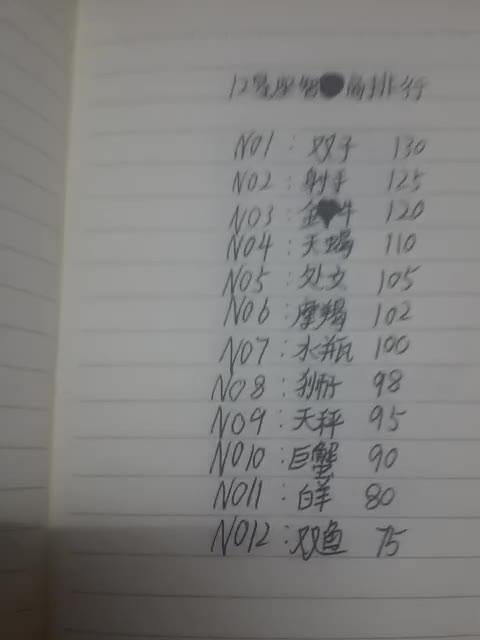 12星座智商排行
NO1：双子 130
NO2：射手 125
NO3：金牛 120
NO4：天蝎 110
NO5：处女 105
NO6：摩羯 102
NO7：水瓶 100
NO8：狮子 98
NO9：天秤 95
NO10：巨蟹 90
NO11：白羊 80
NO12：双鱼 75